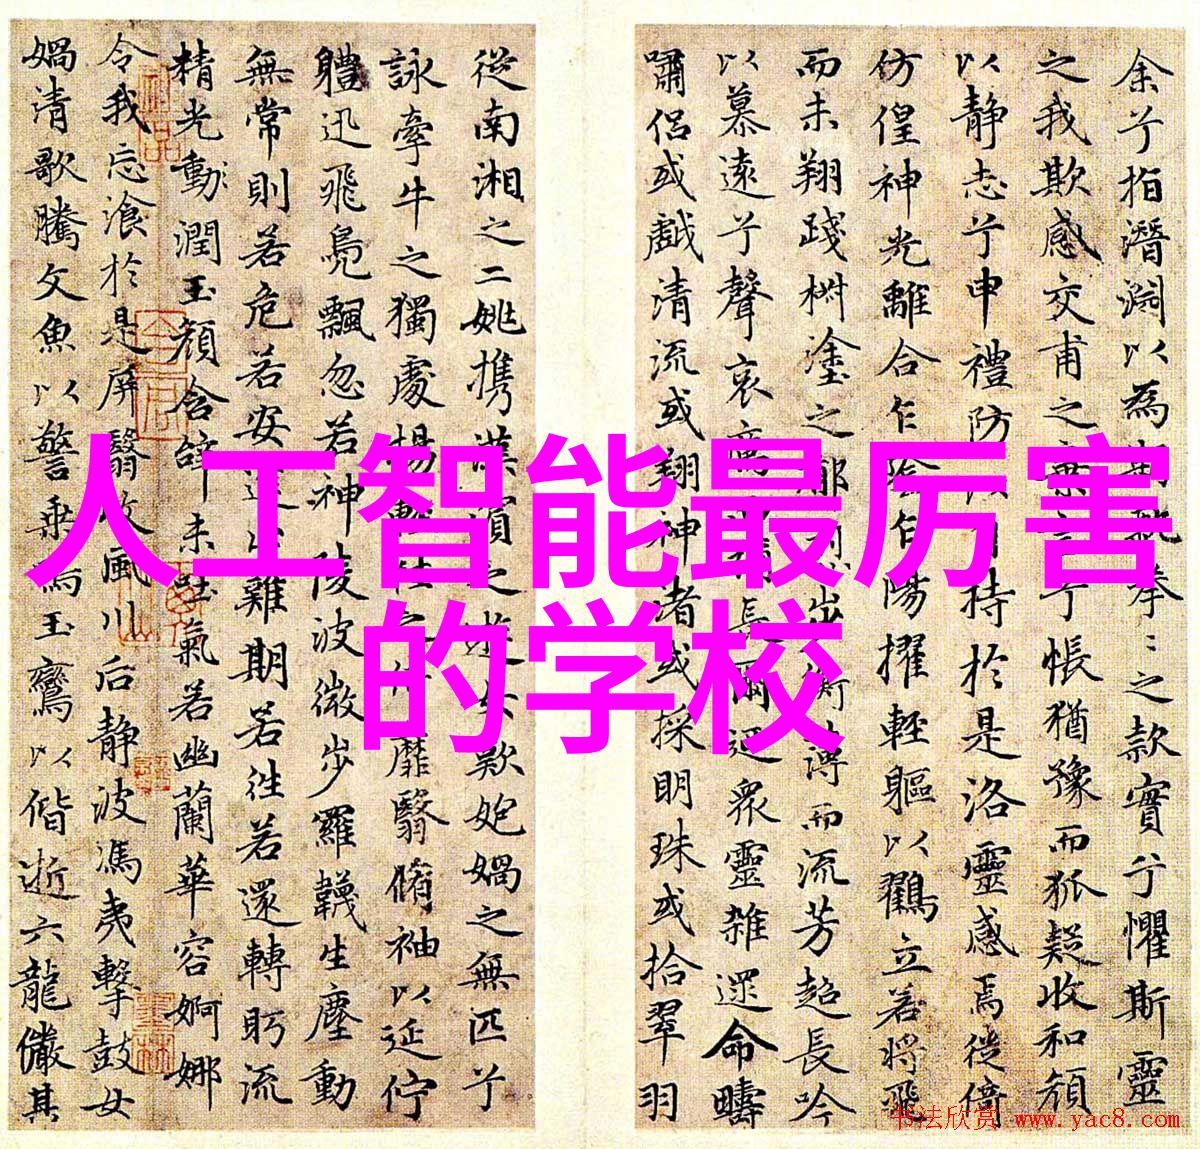 余兮指潛淵以為期拳〻之款實兮懼斯靈
之我欺感交甫之棄言兮悵猶豫而狐疑收和顏
以静志兮申禮防自持於是洛靈感焉徙倚
仿偟神光離合乍陰乍陽擢輕軀以鶴立若將飛
而未翔踐椒塗之郁步衡薄而流芳超長吟
以慕遠兮聲哀厲長爾迺衆靈雜遝命疇
嘯侶或戲清流或翔神渚或採明珠或拾翠羽
從南湘之二姚攜漢濱之遊女歎匏媧之無匹兮
詠牽牛之獨處揚輕袿之靡翳脩袖以延佇
體迅飛鳧飄忽若神陵波微步羅韈生塵動
無常則若危若安進止難期若往若還轉眄流
精光動潤玉顏含辭未吐氣若幽蘭華容婀娜
令我忘飡於是屏翳收風川后静波馮夷擊鼓女
媧清歌騰文魚以警乘鳴玉鸞以偕逝六龍儼其
人工智能最厉害
的学校
书法欣赏 www.yac8.com